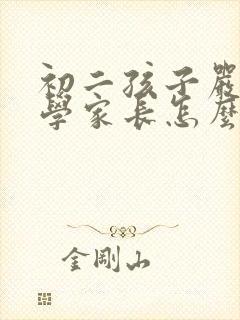 初二孩子嚴
學家長怎麼
金剛山